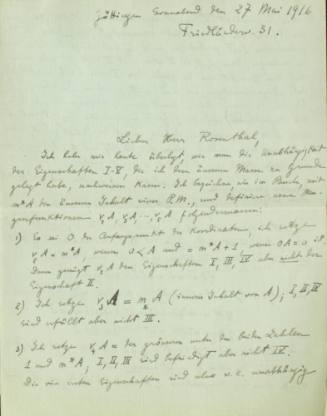 Göttingen Sonnabend den 27 Mai 1916
Friedländerw. 31.
Lieber Herr Rosenthal,
Ich habe mir heute überlegt, wie man die Unabhängigkeit
der Eigenschaften I–V, die ich dem äusseren Masse zu Grunde
gelegt habe, nachweisen kann. Ich bezeichne, wie im Buche, mit
m*A den äusseren Inhalt einer P.M., und definiere neue Men-
genfunktionen folgendermaßen:
1) Es sei O der Anfangspunkt des Koordinaten, ich setze
A = m*A, wenn und = m*A+1, wenn ist.
Dann genügt A den Eigenschaften I, III, IV aber nicht der
Eigenschaft II.
2) Ich setze A = A (innerer Inhalt von A); I, II, IV
sind erfüllt aber nicht III.
3) Ich setze A = der grösseren unter den beiden Zahlen
1 und m*A; I, II, III sind befriedigt aber nicht IV.
Die vier ersten Eigenschaften sind also unabhängig